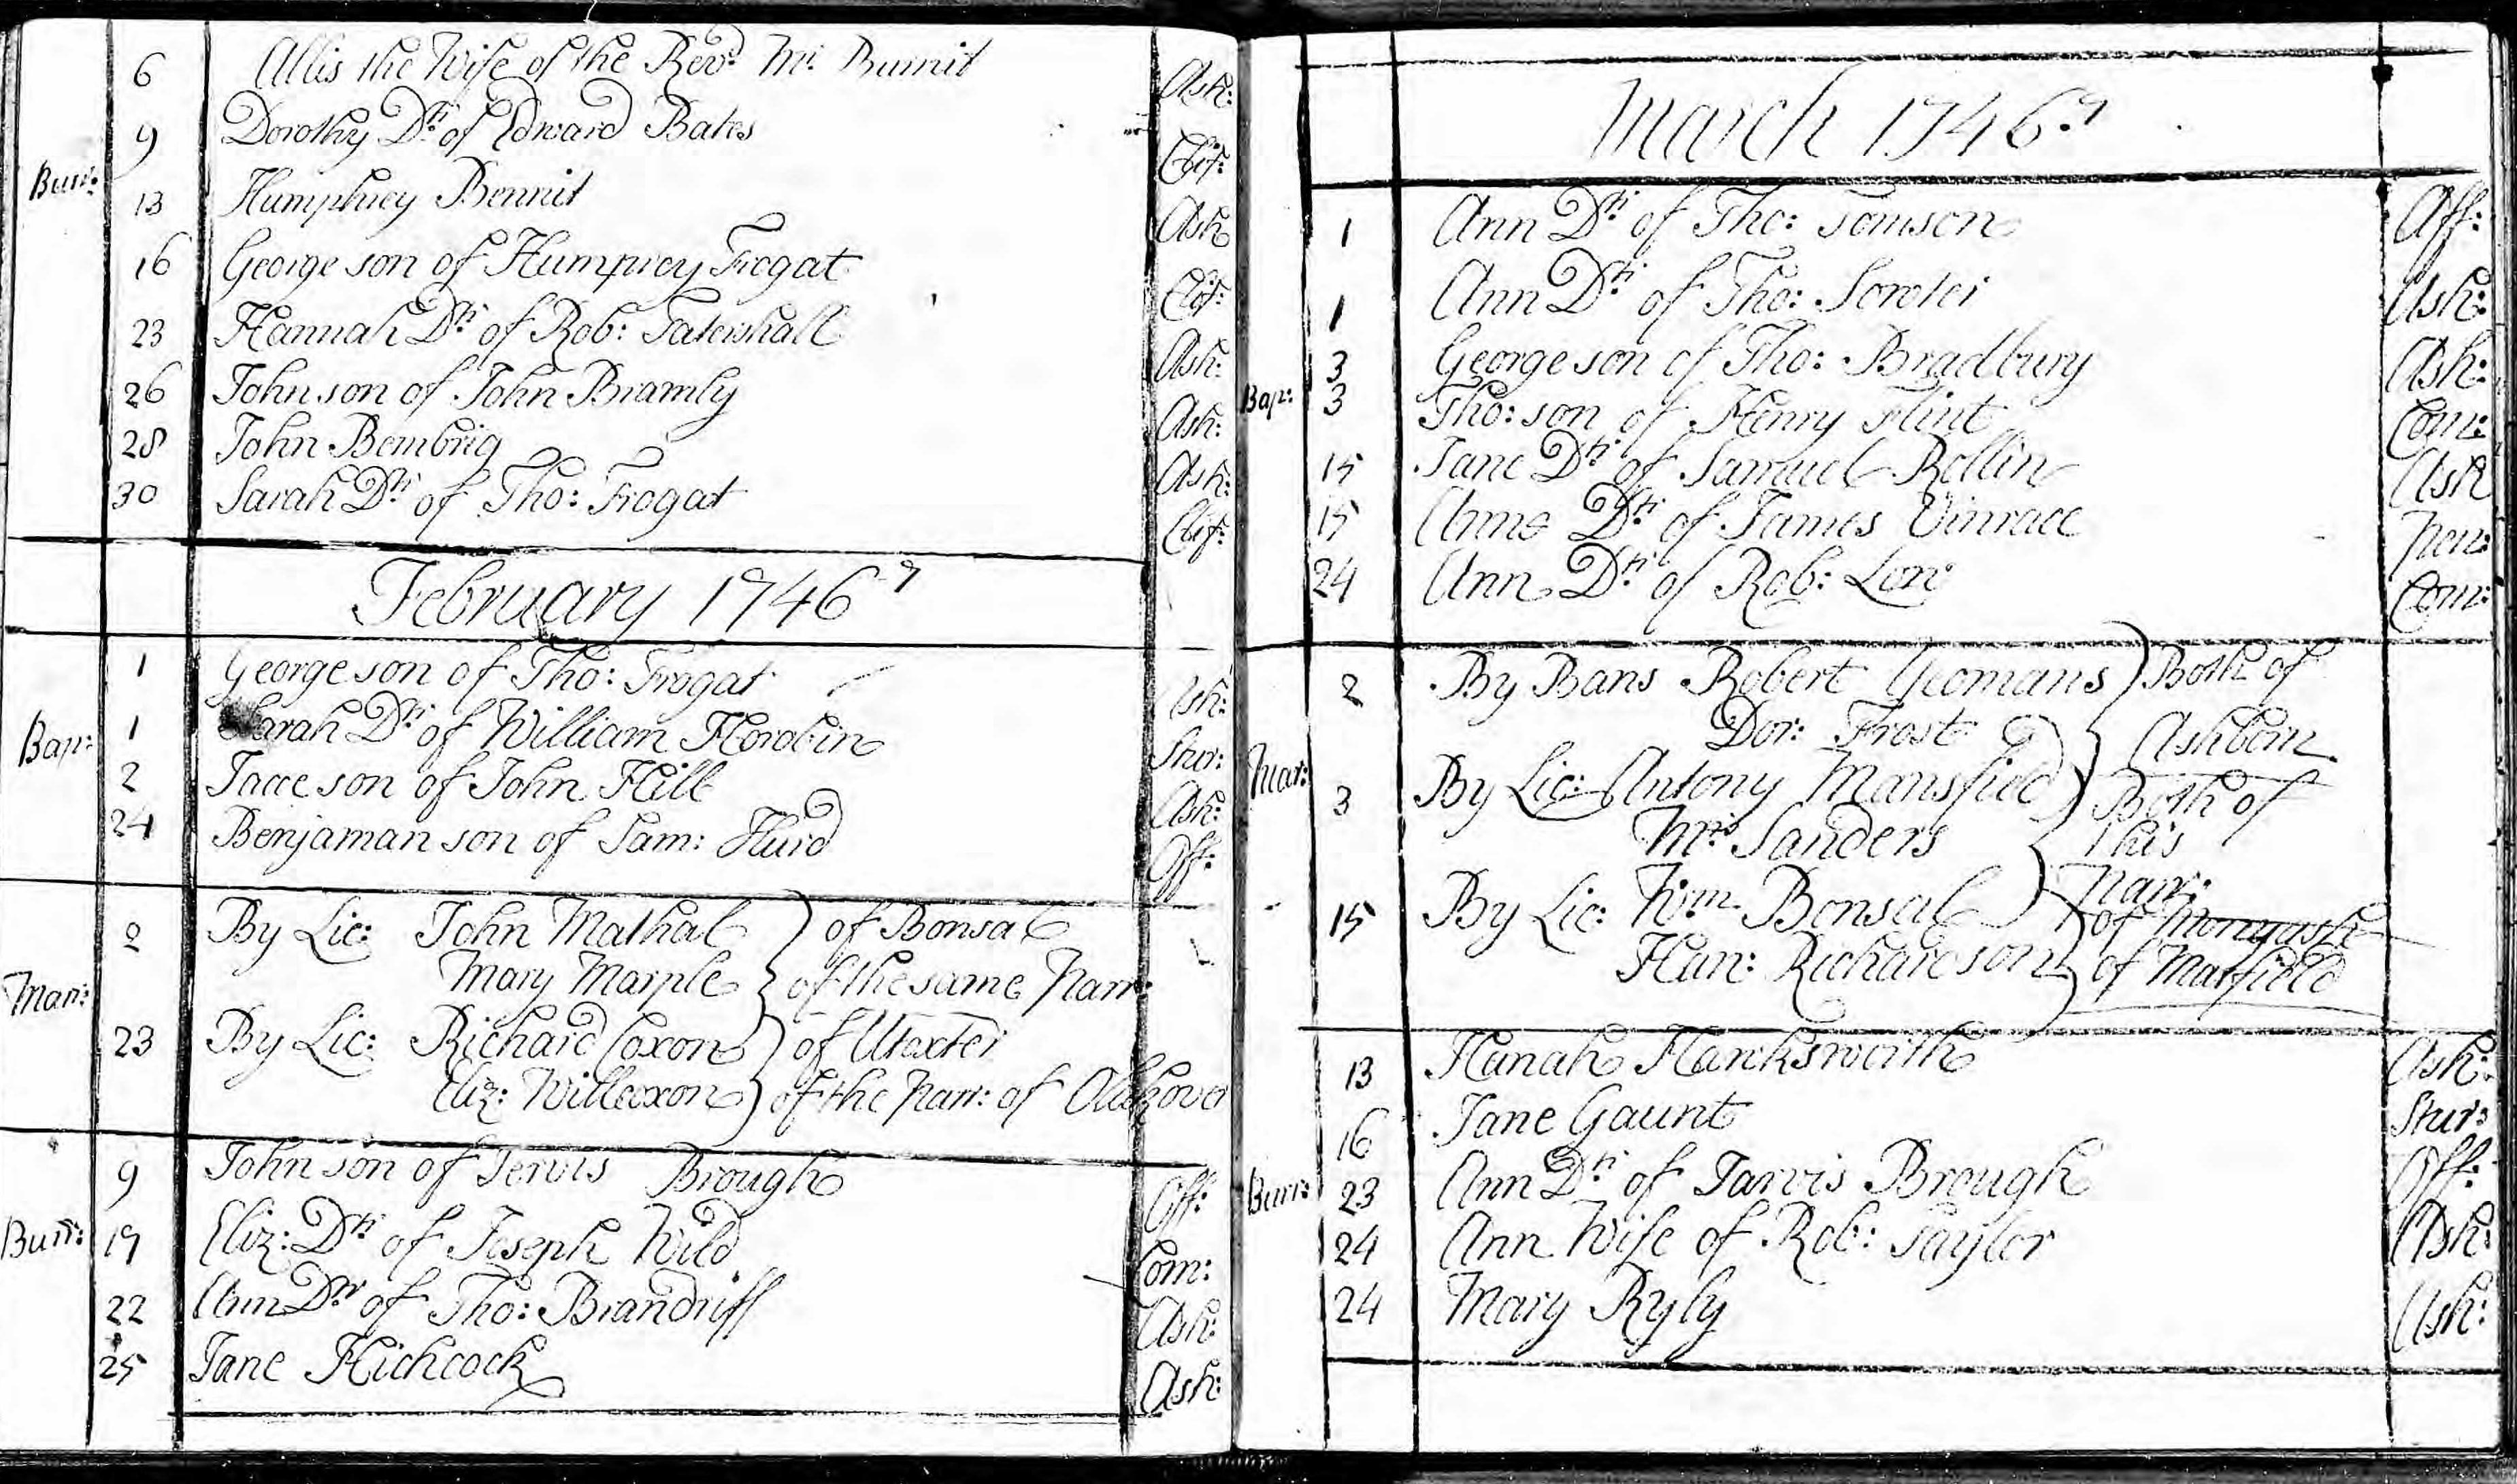 6 Allis the Wife of the Revd. Mr. Burnit Ash:
9 Dorothy Dtr. of Edward Bates Clif:
Burr: 13 Humphrey Bennit Ash
16 George son of Humprey Frogat Clif:
23 Hannah Dtr. of Rob: Tatershall Ash:
26 John son of John Bramly Ash:
28 John Bembrig Ash:
30 Sarah Dtr. of Tho: Frogat Clif:
February 1746 7
1 George son of Tho: Frogat Ash:
Bap: 1 Sarah Dtr. of William Horobin Stur:
2 son of John Hill Ash:
24 Benjaman son of Sam: Hurd Off:
2 By Lic: John Mathal of Bonsal
Mar: Mary Marple of the same Parr:
23 By Lic: Richard Coxon of Utoxter
Eliz: Willcoxon of the Parr: of
9 John son of Jervis Brough Off:
Burr: 19 Eliz: Dtr. of Joseph Wild Com:
22 Ann Dtr. of Tho: Brandriff Ash:
25 Jane Hichcock Ash:
March 1746:7
1 Ann Dtr. of Tho: Tomson Off:
1 Ann Dtr. of Tho: Ash:
3 George son of Tho: Bradbury Ash:
Bap: 3 Tho: son of Henry Flint Com:
15 Jane Dtr. of Samuel Rollin Ash
15 Anne Dtr. of James Vinrace
24 Ann Dtr. of Rob: Low Com:
2 By Bans Robert Yeomans Both of
Dor: Frost Ashborn
Mar: 3 By Lic: Antony Mansfield Both of
Mrs. Sanders this
Parr:
15 By Lic: Wm. Bonsal of Monyash
Han: Richardson of Matfield
13 Hanah Hanksworth Ash:
16 Jane Gaunt Stur:
Burr: 23 Ann Dtr. of Jarvis Brough Off:
24 Ann Wife of Rob: Taylor Ash:
24 Mary Ryly Ash: